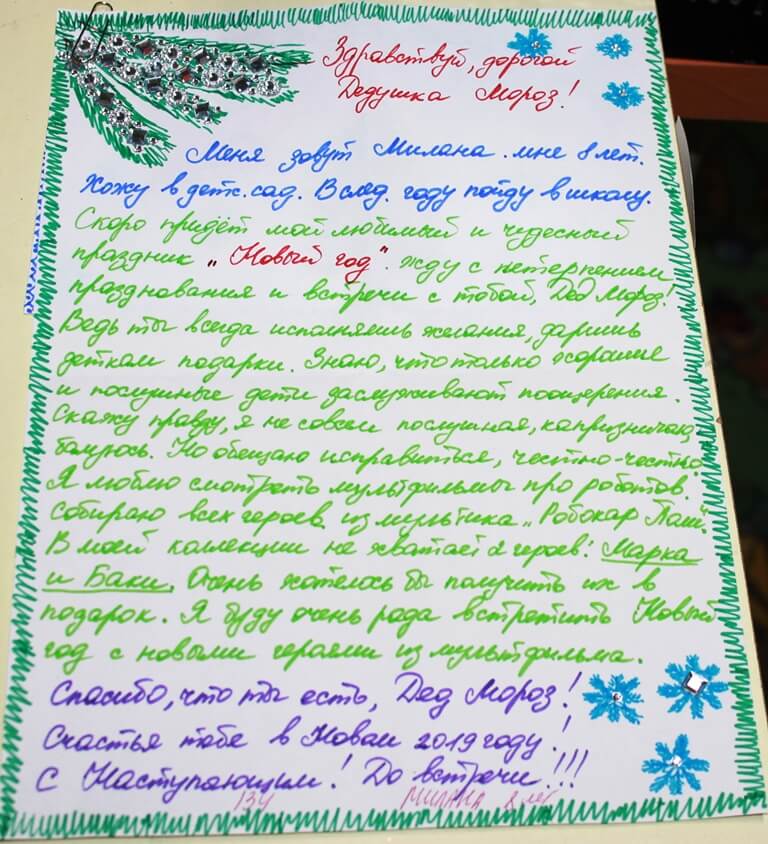 Здравствуй, дорогой
Дедушка Мороз!
Меня зовут Милана. мне 8 лет.
Хожу в детс. сад. В след. году пойду в школу.
Скоро придёт мой любимый и чудесный
праздник „Новый год". жду с нетерпением
празднования и встречи с тобой, Дед Мороз!
Ведь ты всегда исполняешь желания, даришь
деткам подарки. Знаю, что только хорошие
и послушные дети заслуживают поощрения.
Скажу правду, я не совсем послушная, капризничаю,
балуюсь. Но обещаю исправиться, честно-честно.
Я люблю смотреть мультфильмы про роботов.
Собираю всех героев из мультика „Робокар Поли".
В моей коллекции не хватает 2 героев: Марка
и Баки. Очень хотелось бы получить их в
подарок. Я буду очень рада встретить Новый
год с новыми героями из мультфильма.
Спасибо, что ты есть, Дед Мороз!
Счастья тебе в Новом 2019 году!
С Наступающим! До встречи!!!
134 МИЛАНА 8 лет